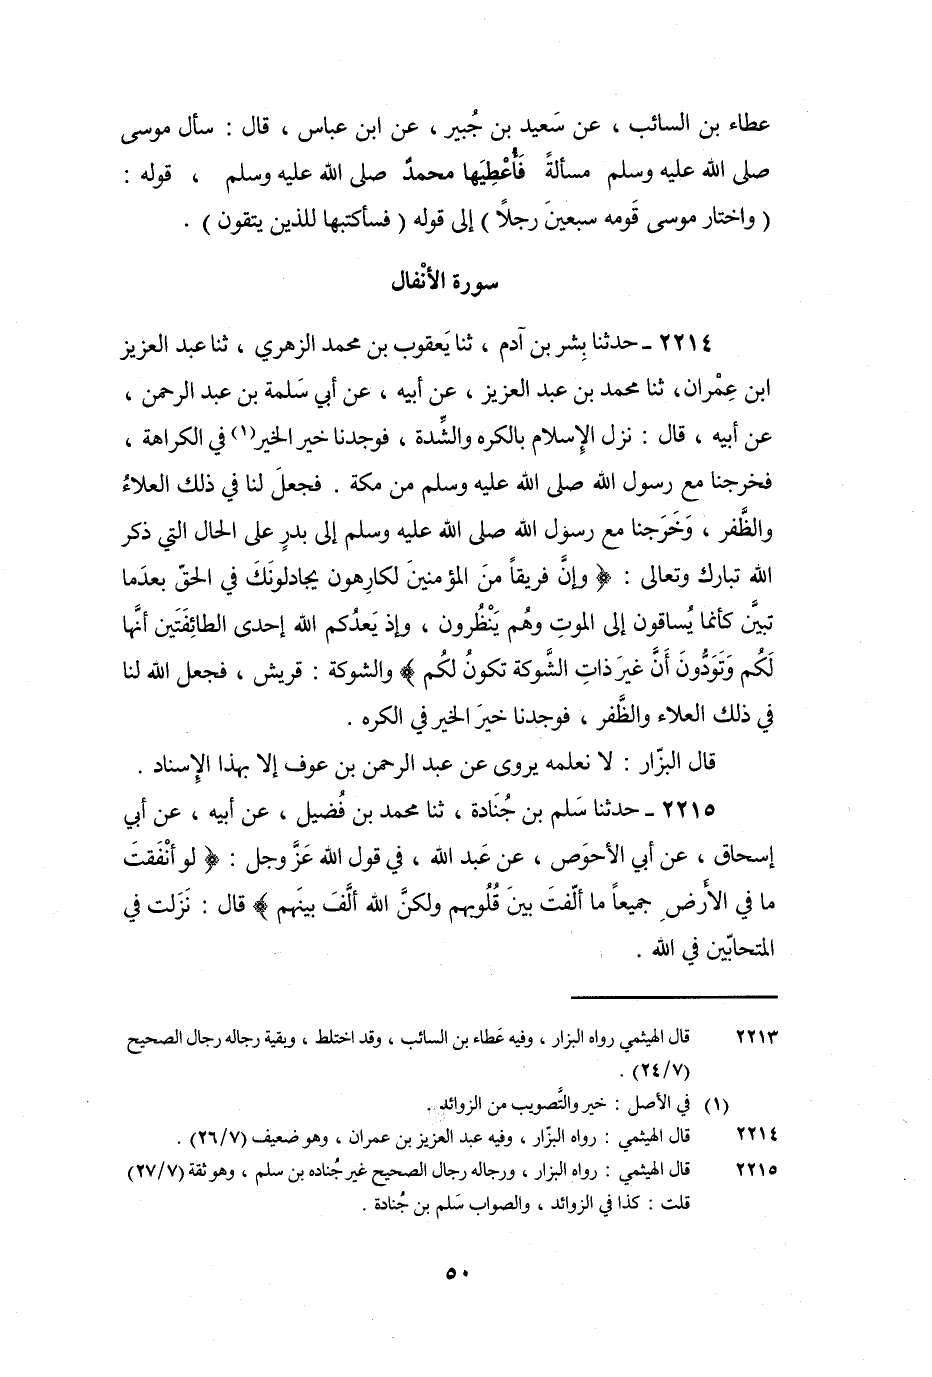 عطاء بن السائب ، عن سَعيد بن جُبير ، عن ابن عباس ، قال : سأل موسى
صلى الله عليه وسلم مسألةً فَأُعْطِيَها محمدٌ صلى الله عليه وسلم ، قوله :
( واختار موسى قَومه سبعينَ رجلاً ) إلى قوله ( فسأكتبها للذين يتقون ) .
سورة الأنْفال
٢٢١٤ ـ حدثنا بِشر بن آدم ، ثنا يَعقوب بن محمد الزهري ، ثنا عبد العزيز
ابن عِمْران، ثنا محمد بن عبد العزيز ، عن أبيه ، عن أبي سَلمة بن عبد الرحمن ،
عن أبيه ، قال : نزل الإسلام بالكره والشِّدة ، فوجدنا خير الخير(١) في الكراهة ،
فخرجنا مع رسول الله صلى الله عليه وسلم من مكة . فجعلَ لنا في ذلك العلاءُ
والظَّفر ، وَخَرَجنا مع رسول الله صلى الله عليه وسلم إلى بدرٍ على الحال التي ذكر
الله تبارك وتعالى : ﴿ وإنَّ فريقاً منَ المؤمنينَ لكارِهون يجادلونَكَ في الحقّ بعدَما
تبيَّن كأنما يُساقون إلى الموتِ وهُم يَنْظُرون ، وإذ يَعدُكم الله إحدى الطائِفَتَين أنَّها
لَكُم وَتَوَدُّونَ أَنَّ غيرَ ذاتِ الشَّوكة تكونُ لكُم ﴾ والشوكة : قريش ، فجعل الله لنا
في ذلك العلاء والظَّفر ، فوجدنا خيرَ الخير في الكره .
قال البزّار : لا نعلمه يروى عن عبد الرحمن بن عوف إلا بهذا الإسناد .
٢٢١٥ ـ حدثنا سَلم بن جُنَادة ، ثنا محمد بن فُضيل ، عن أبيه ، عن أبي
إسحاق ، عن أبي الأحوَص ، عن عَبد الله ، في قول الله عَزَّ وجل : ﴿ لو أنْفَقتَ
ما في الأَرضِ جميعاً ما ألّفتَ بينَ قُلُوبهم ولكنَّ الله ألَّفَ بينَهم ﴾ قال : نَزَلت في
المتحابّين في الله .
٢٢١٣ قال الهيثمي رواه البزار ، وفيه عَطاء بن السائب ، وقد اختلط ، وبقية رجاله رجال الصحيح
(٢٤/٧) .
(١) في الأصل : خير والتَّصويب من الزوائد .
٢٢١٤ قال الهيثمي : رواه البزّار ، وفيه عبد العزيز بن عمران ، وهو ضعيف (٢٦/٧) .
٢٢١٥ قال الهيثمي : رواه البزار ، ورجاله رجال الصحيح غير جُناده بن سلم ، وهو ثقة (٢٧/٧)
قلت : كذا في الزوائد ، والصواب سَلم بن جُنادة .
٥٠